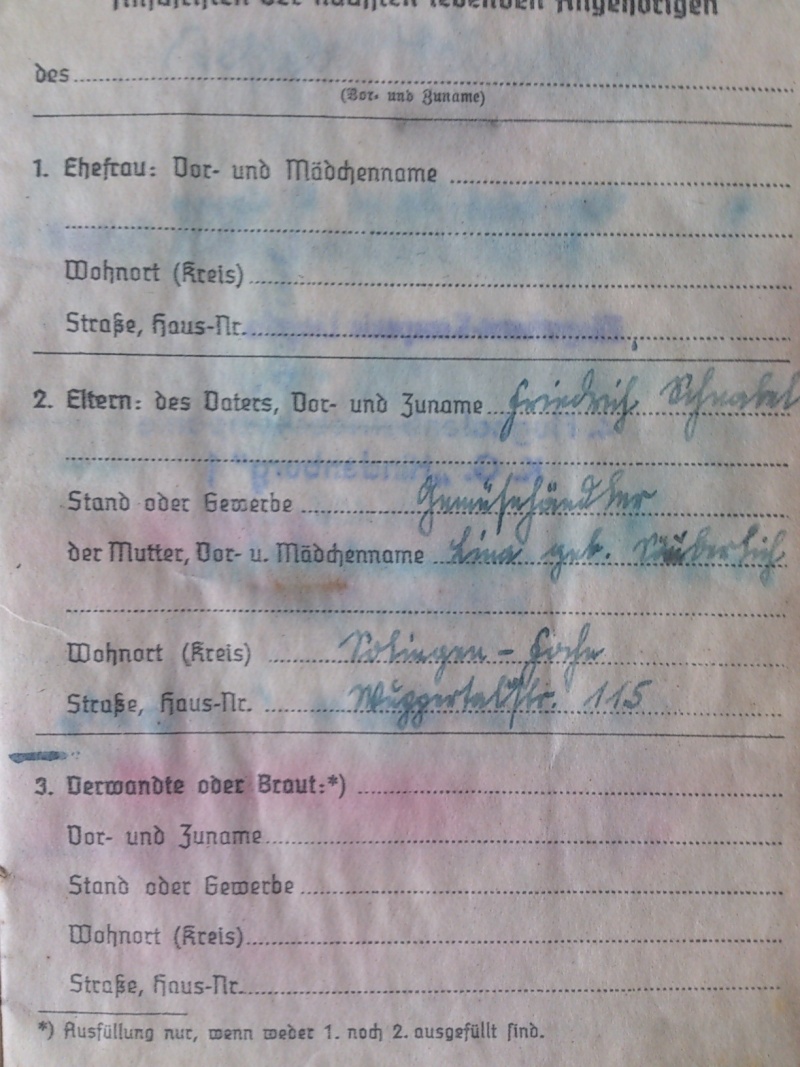 Anschriften der nächsten lebenden Angehörigen
des
(Vor- und Zuname)
1. Ehefrau: Vor- und Mädchenname
Wohnort (Kreis)
Straße, Haus-Nr.
2. Eltern: des Vaters, Vor- und Zuname Friedrich Schnabel
Stand oder Gewerbe Gemüsehändler
der Mutter, Vor- u. Mädchenname Lina geb. Säuberlich
Wohnort (Kreis) Solingen - Foche
Straße, Haus-Nr. Wuppertalstr. 115
3. Verwandte oder Braut:*)
Vor- und Zuname
Stand oder Gewerbe
Wohnort (Kreis)
Straße, Haus-Nr.
*) Ausfüllung nur, wenn weder 1. noch 2. ausgefüllt sind.